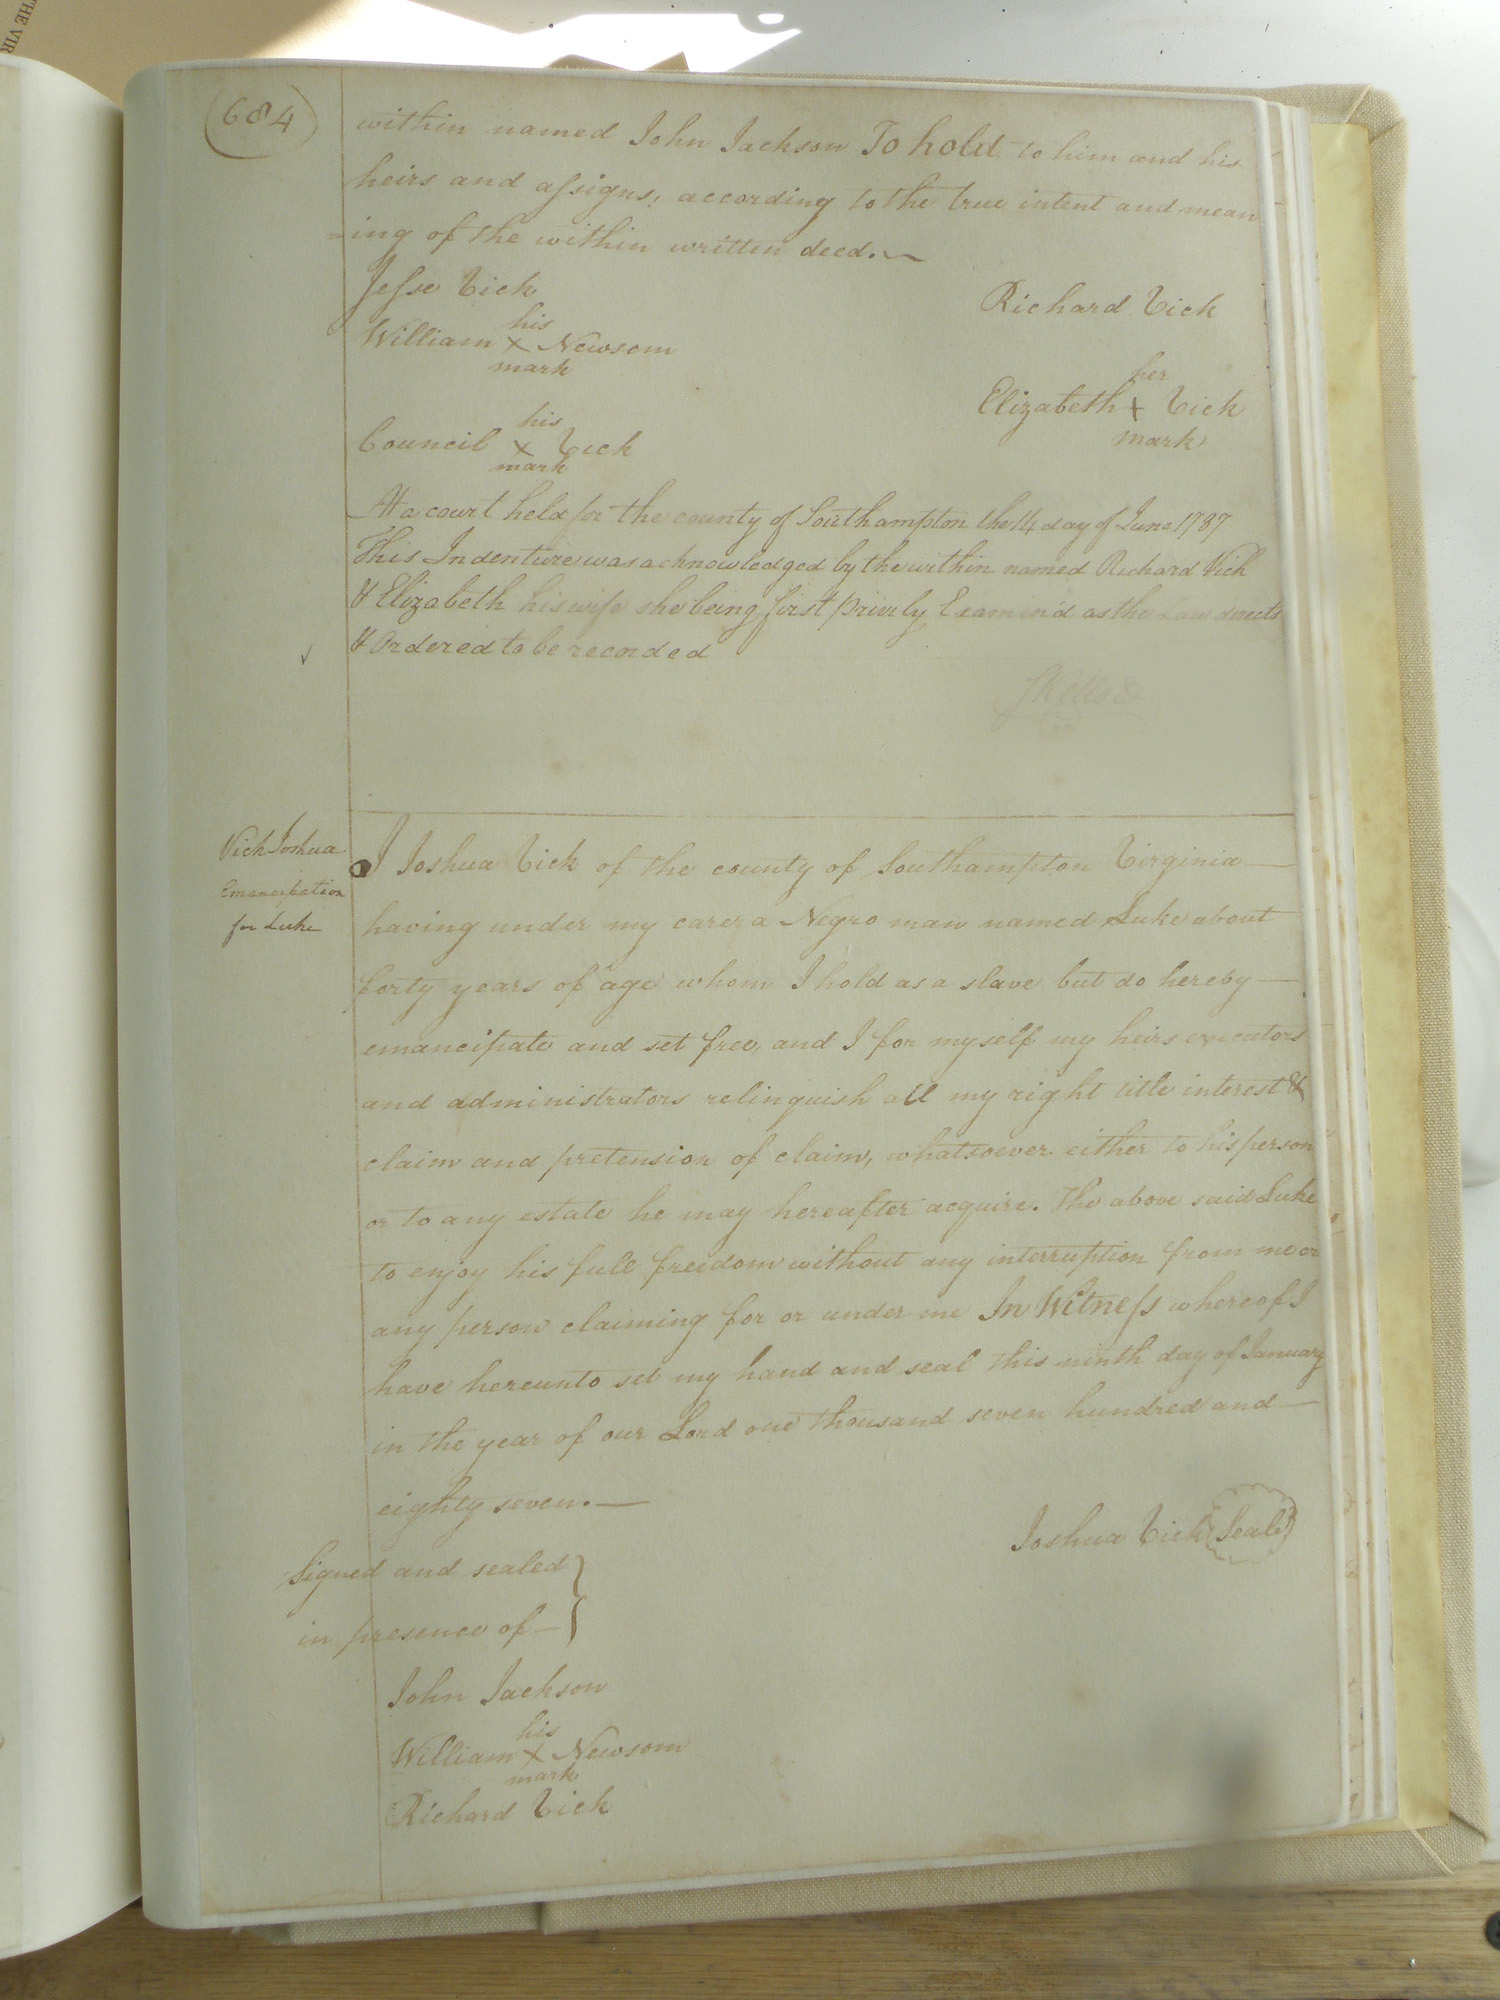 THE VIR
684
within named John Jackson To hold to him and his
heirs and assigns, according to the true intent and mean
=ing of the within written deed.
Jesse Vick
Richard Vick
his
William x Newsom
mark
her
Elizabeth x Vick
mark
his
Council x Vick
mark
At a court held for the county of Southampton the 14 day of June 1787
This Indenture was acknowledged by the within named Richard Vick
& Elizabeth his wife she being first privily Examin'd as the Law directs
& Ordered to be recorded
Vick Joshua
Emancipation
for Luke
I Joshua Vick of the county of Southampton Virginia
having under my care a Negro man named Luke about
forty years of age whom I hold as a slave but do hereby
emancipate and set free, and I for myself my heirs executors
and administrators relinquish all my right title interest &
claim and pretension of claim, whatsoever either to his person
or to any estate he may hereafter acquire. The above said Luke
to enjoy his full freedom without any interruption from me or
any person claiming for or under me In Witness whereof I
have hereunto set my hand and seal this ninth day of January
in the year of our Lord one thousand seven hundred and
eighty seven.
Joshua Vick (Seal)
Signed and sealed
in presence of
John Jackson
his
William x Newsom
mark
Richard Vick